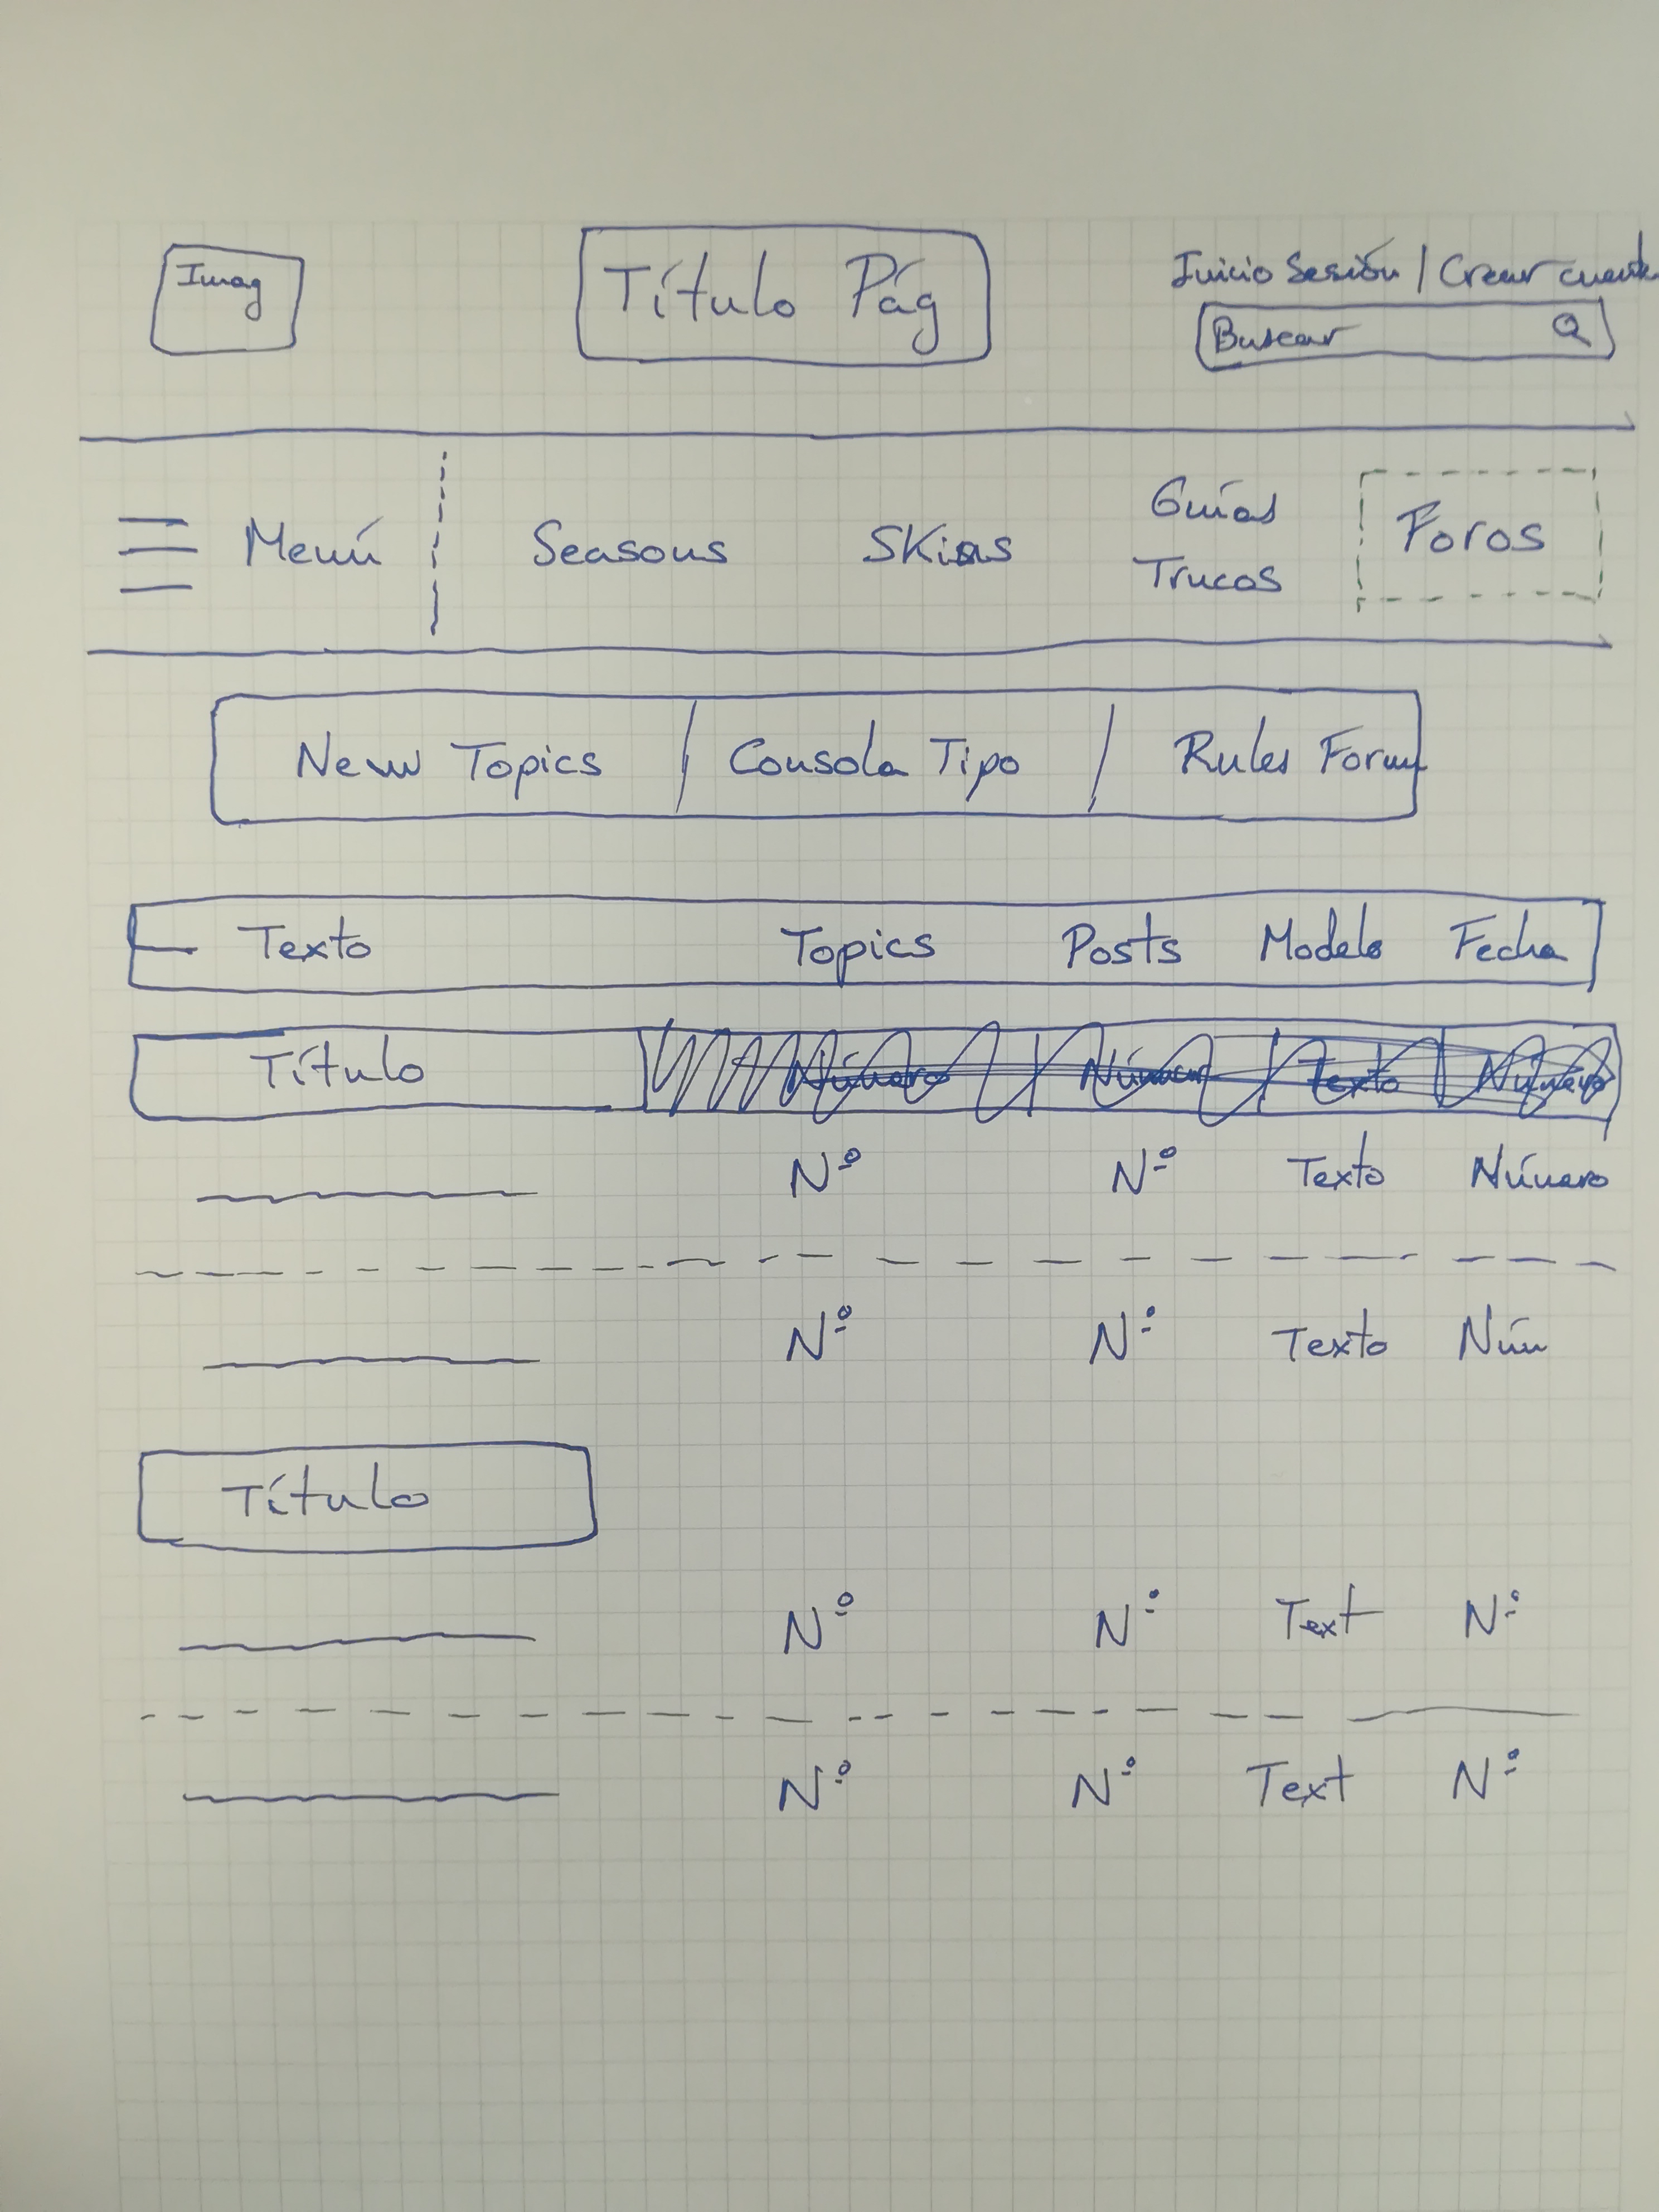 Imag
Título Pág
Inicio Sesión / Crear cuenta
Buscar
Menú
Seasons
Skins
Guías
Trucos
Foros
New Topics / Consola Tipo / Rules Forum
Texto Topics Posts Modelo Fecha
Título Número Número Texto Número
Nº Nº Texto Número
Nº Nº Texto Núm
Título
Nº Nº Text Nº
Nº Nº Text Nº